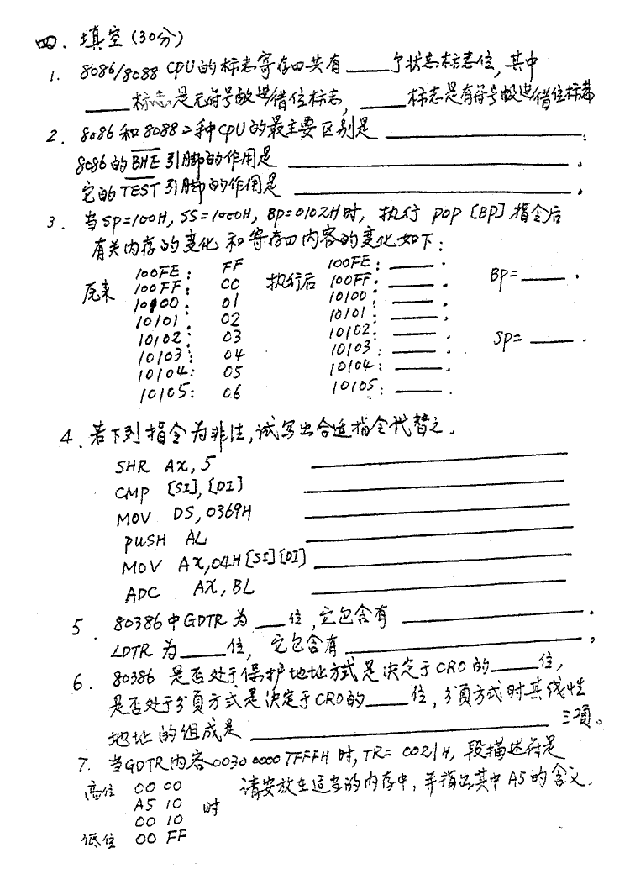 四、填空(30分)
1. 8086/8088 CPU的标志寄存四共有____个状态标志位,其中
____标志是无符号数进借位标志,____标志是有符号数进借位标志
2. 8086和8088二种CPU的最主要区别是____.
8086的BHE引脚的作用是____.
它的TEST引脚的作用是____.
3. 当SP=100H, SS=1000H, BP=0102H时, 执行 POP [BP] 指令后
有关内存的变化和寄存四内容的变化如下:
原来 100FE: FF 执行后 100FE: ____. BP=____.
100FF: 00 100FF: ____.
10100: 01 10100: ____.
10101: 02 10101: ____.
10102: 03 10102: ____. SP=____.
10103: 04 10103: ____.
10104: 05 10104: ____.
10105: 06 10105: ____.
4、若下列指令为非法,试写出合适指令代替之。
SHR AX, 5
CMP [SI], [DI]
MOV DS, 0369H
PUSH AL
MOV AX, 04H[SI][DI]
ADC AX, BL
5. 80386中GDTR为____位,它包含有____.
LDTR为____位, 它包含有____,
6. 80386 是否处于保护地址方式是决定于CR0的____位,
是否处于分页方式是决定于CR0的____位,分页方式时其线性
地址的组成是____三项。
7. 当GDTR内容0030 0000 7FFFH时, TR=0021H, 段描述符是
高位 00 00 请安放在适当的内存中,并指出其中A5的含义.
A5 10 时
00 10
低位 00 FF